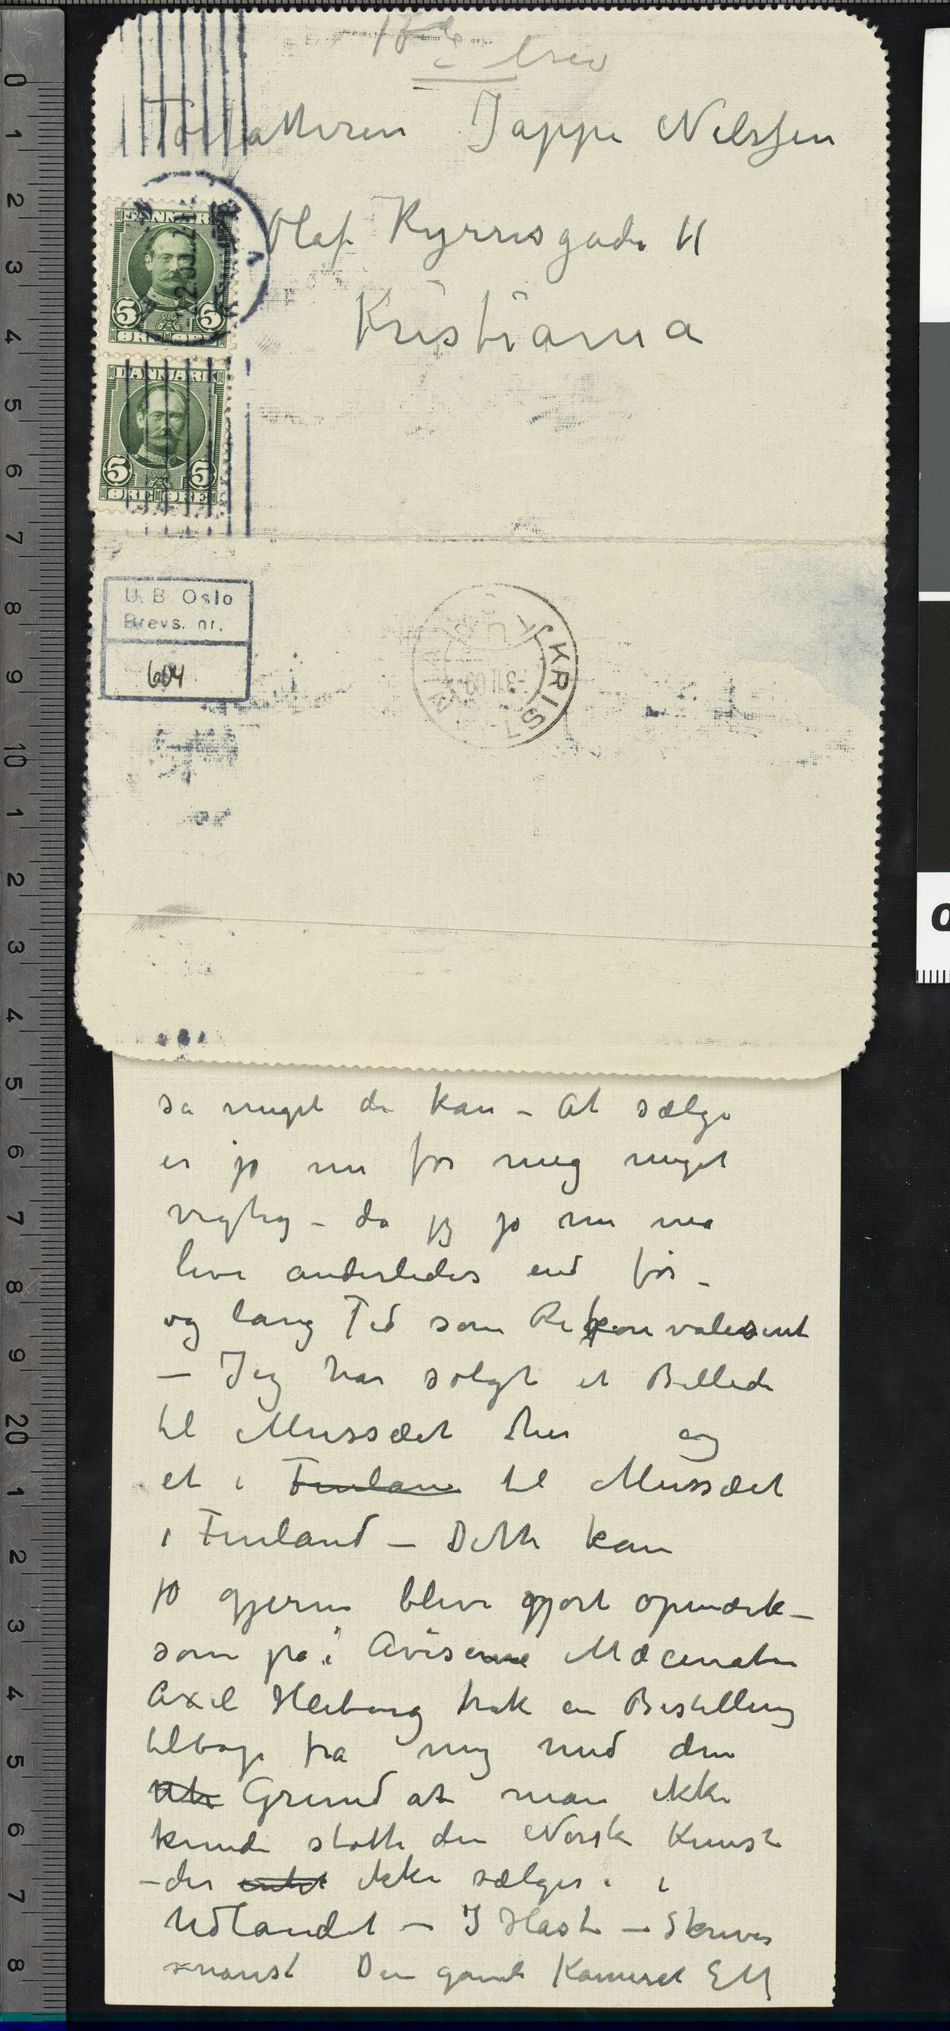 brev
Forfatteren Jappe Nilssen
Olaf Kyrresgade 11
Kristiania
DANMARK
5 5
ØRE ØRE
DANMARK
5 5
ØRE ØRE
U. B. Oslo
Brevs. nr.
604
KRIS
3 II 09
så meget de kan – At sælge
er jo nu for meg meget
vigtig – da jeg jo nu må
leve anderledes end før –
og lang Tid som Rekonvalesent
– Jeg har solgt et Billede
til Mussæet her og
et i Finlan til Mussæet
i Finland – Dette kan
jo gjerne blive gjort opmærk–
som på i Aviserne Mæcenaten
Axel Heiberg trak en Bestilling
tilbage fra mig med den
Grund at man ikke
kunde støtte den Norske Kunst
– der intet ikke sælges i
Udlandet – I Hast – Skrives
snarest Din gamle Kamerat EM